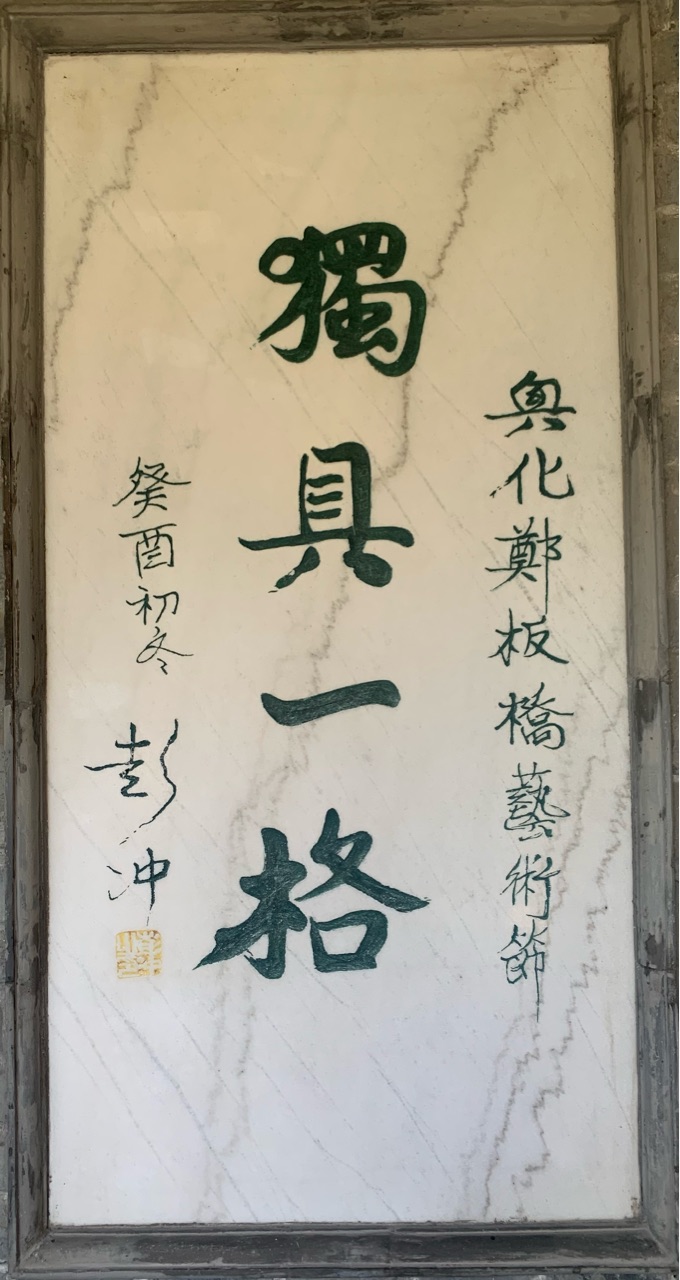 興化鄭板橋藝術節
獨具一格
癸酉初冬
彭冲